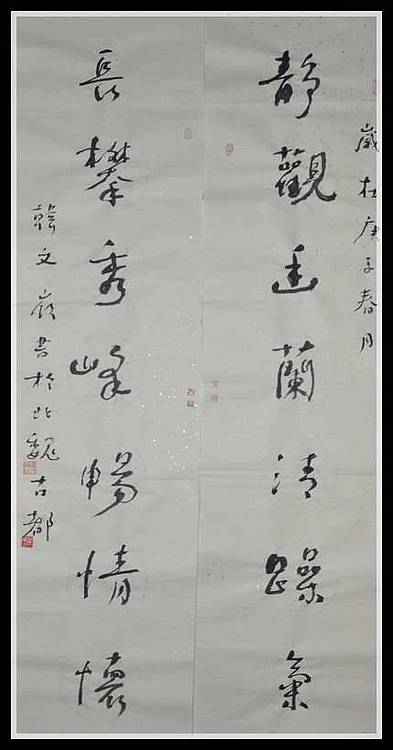 歲在庚子春月
靜觀幽蘭清躁氣
長攀秀峰暢情懷
韓文嶺書於北魏古都